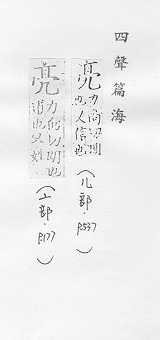 四聲篇海
亮 力尚切明
也人信也
(儿部.p537)
亮 力仰切明也
(亠部.p177)